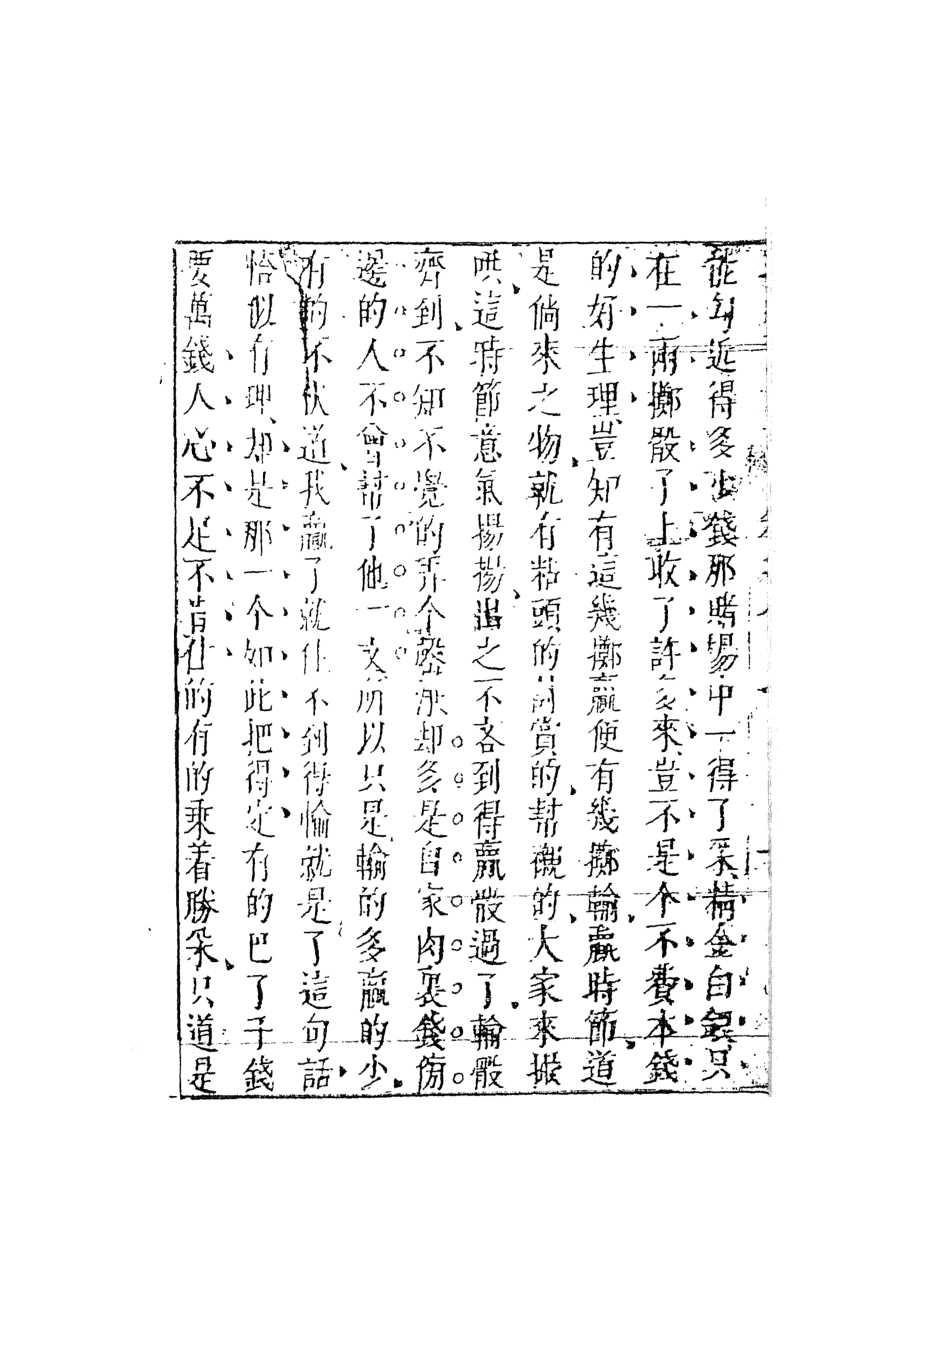 能勾近得多少錢那賭塲中一得了采精金白銀只
在一兩擲骰了上收了許多來豈不是个不費本錢
的好生理豈知有這幾擲贏便有幾擲輸贏時節道
是倘來之物就有粘頭的討賞的幫襯的大家來撮
哄這時節意氣揚揚出之不吝到得贏骰過了輸骰
齊到不知不覺的弄个罄淨却多是自家肉裏錢傍
邊的人不曾幫了他一文所以只是輸的多贏的少
有的不伏道我贏了就住不到得輸就是了這句話
恰似有理却是那一个如此把得定有的巴了千錢
要萬錢人心不足不肯住的有的乘着勝采只道是